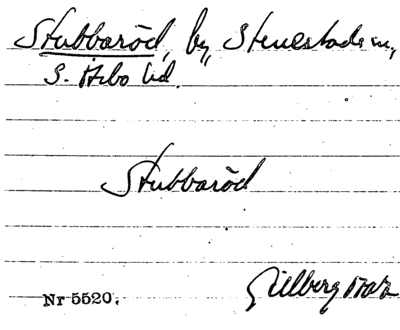 Stubbaröd, by, Stenestads sn,
S. Åsbo hd.
Stubbaröd
Gillberg
Nr 5520.